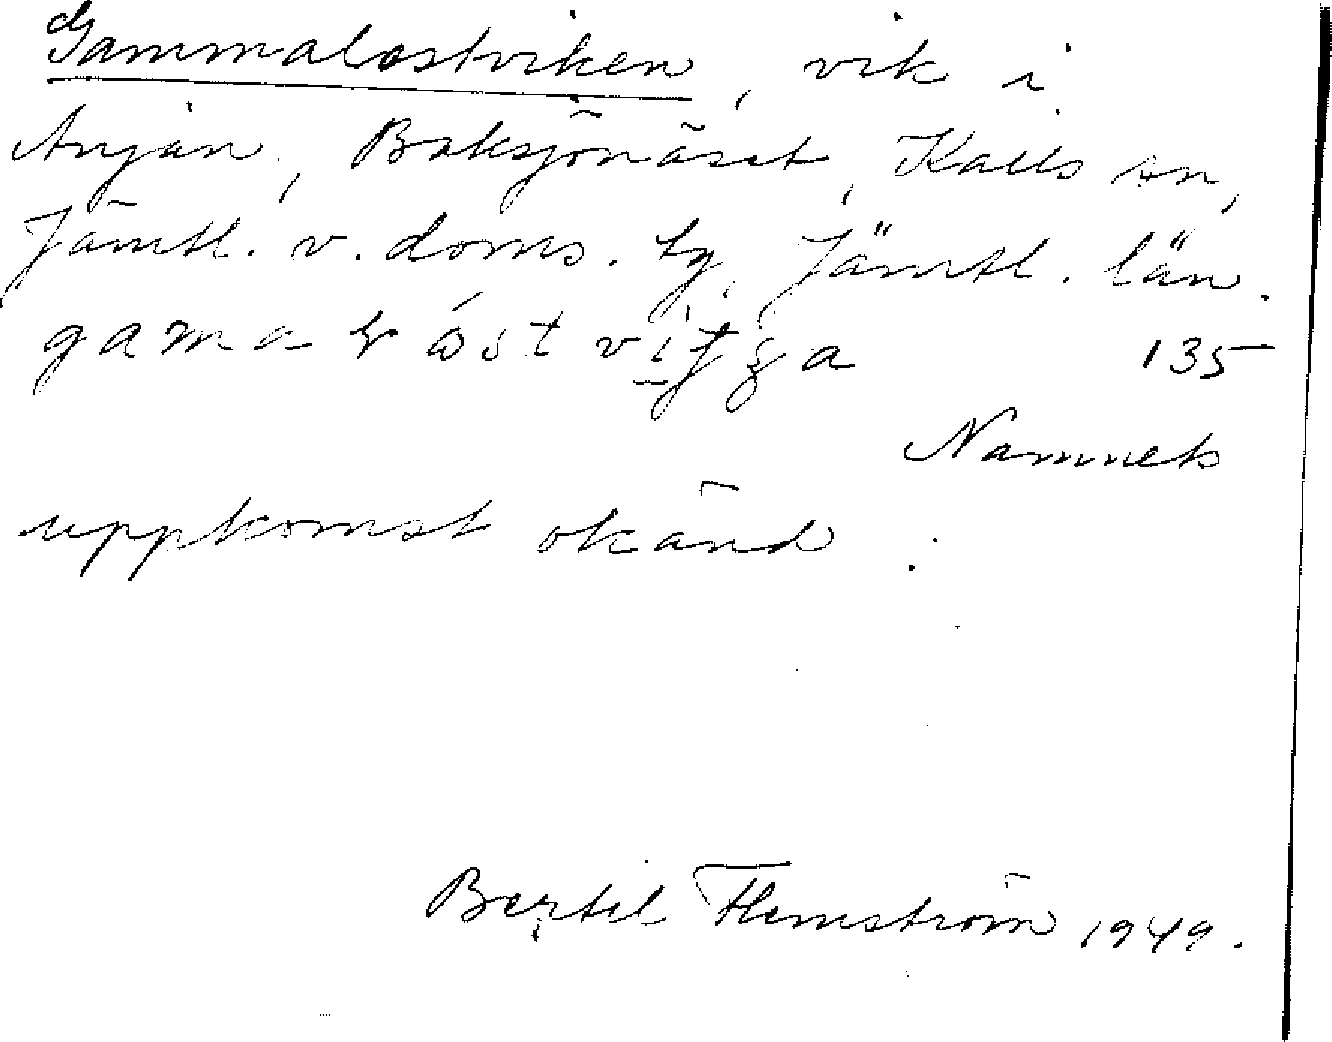 Gammalostviken, vik i
Anjan, Baksjönäset, Kalls sn,
Jämtl. v. doms. tg, Jämtl. län.
135
Namnets
uppkomst okänd.
Bertil Flemström 1949.